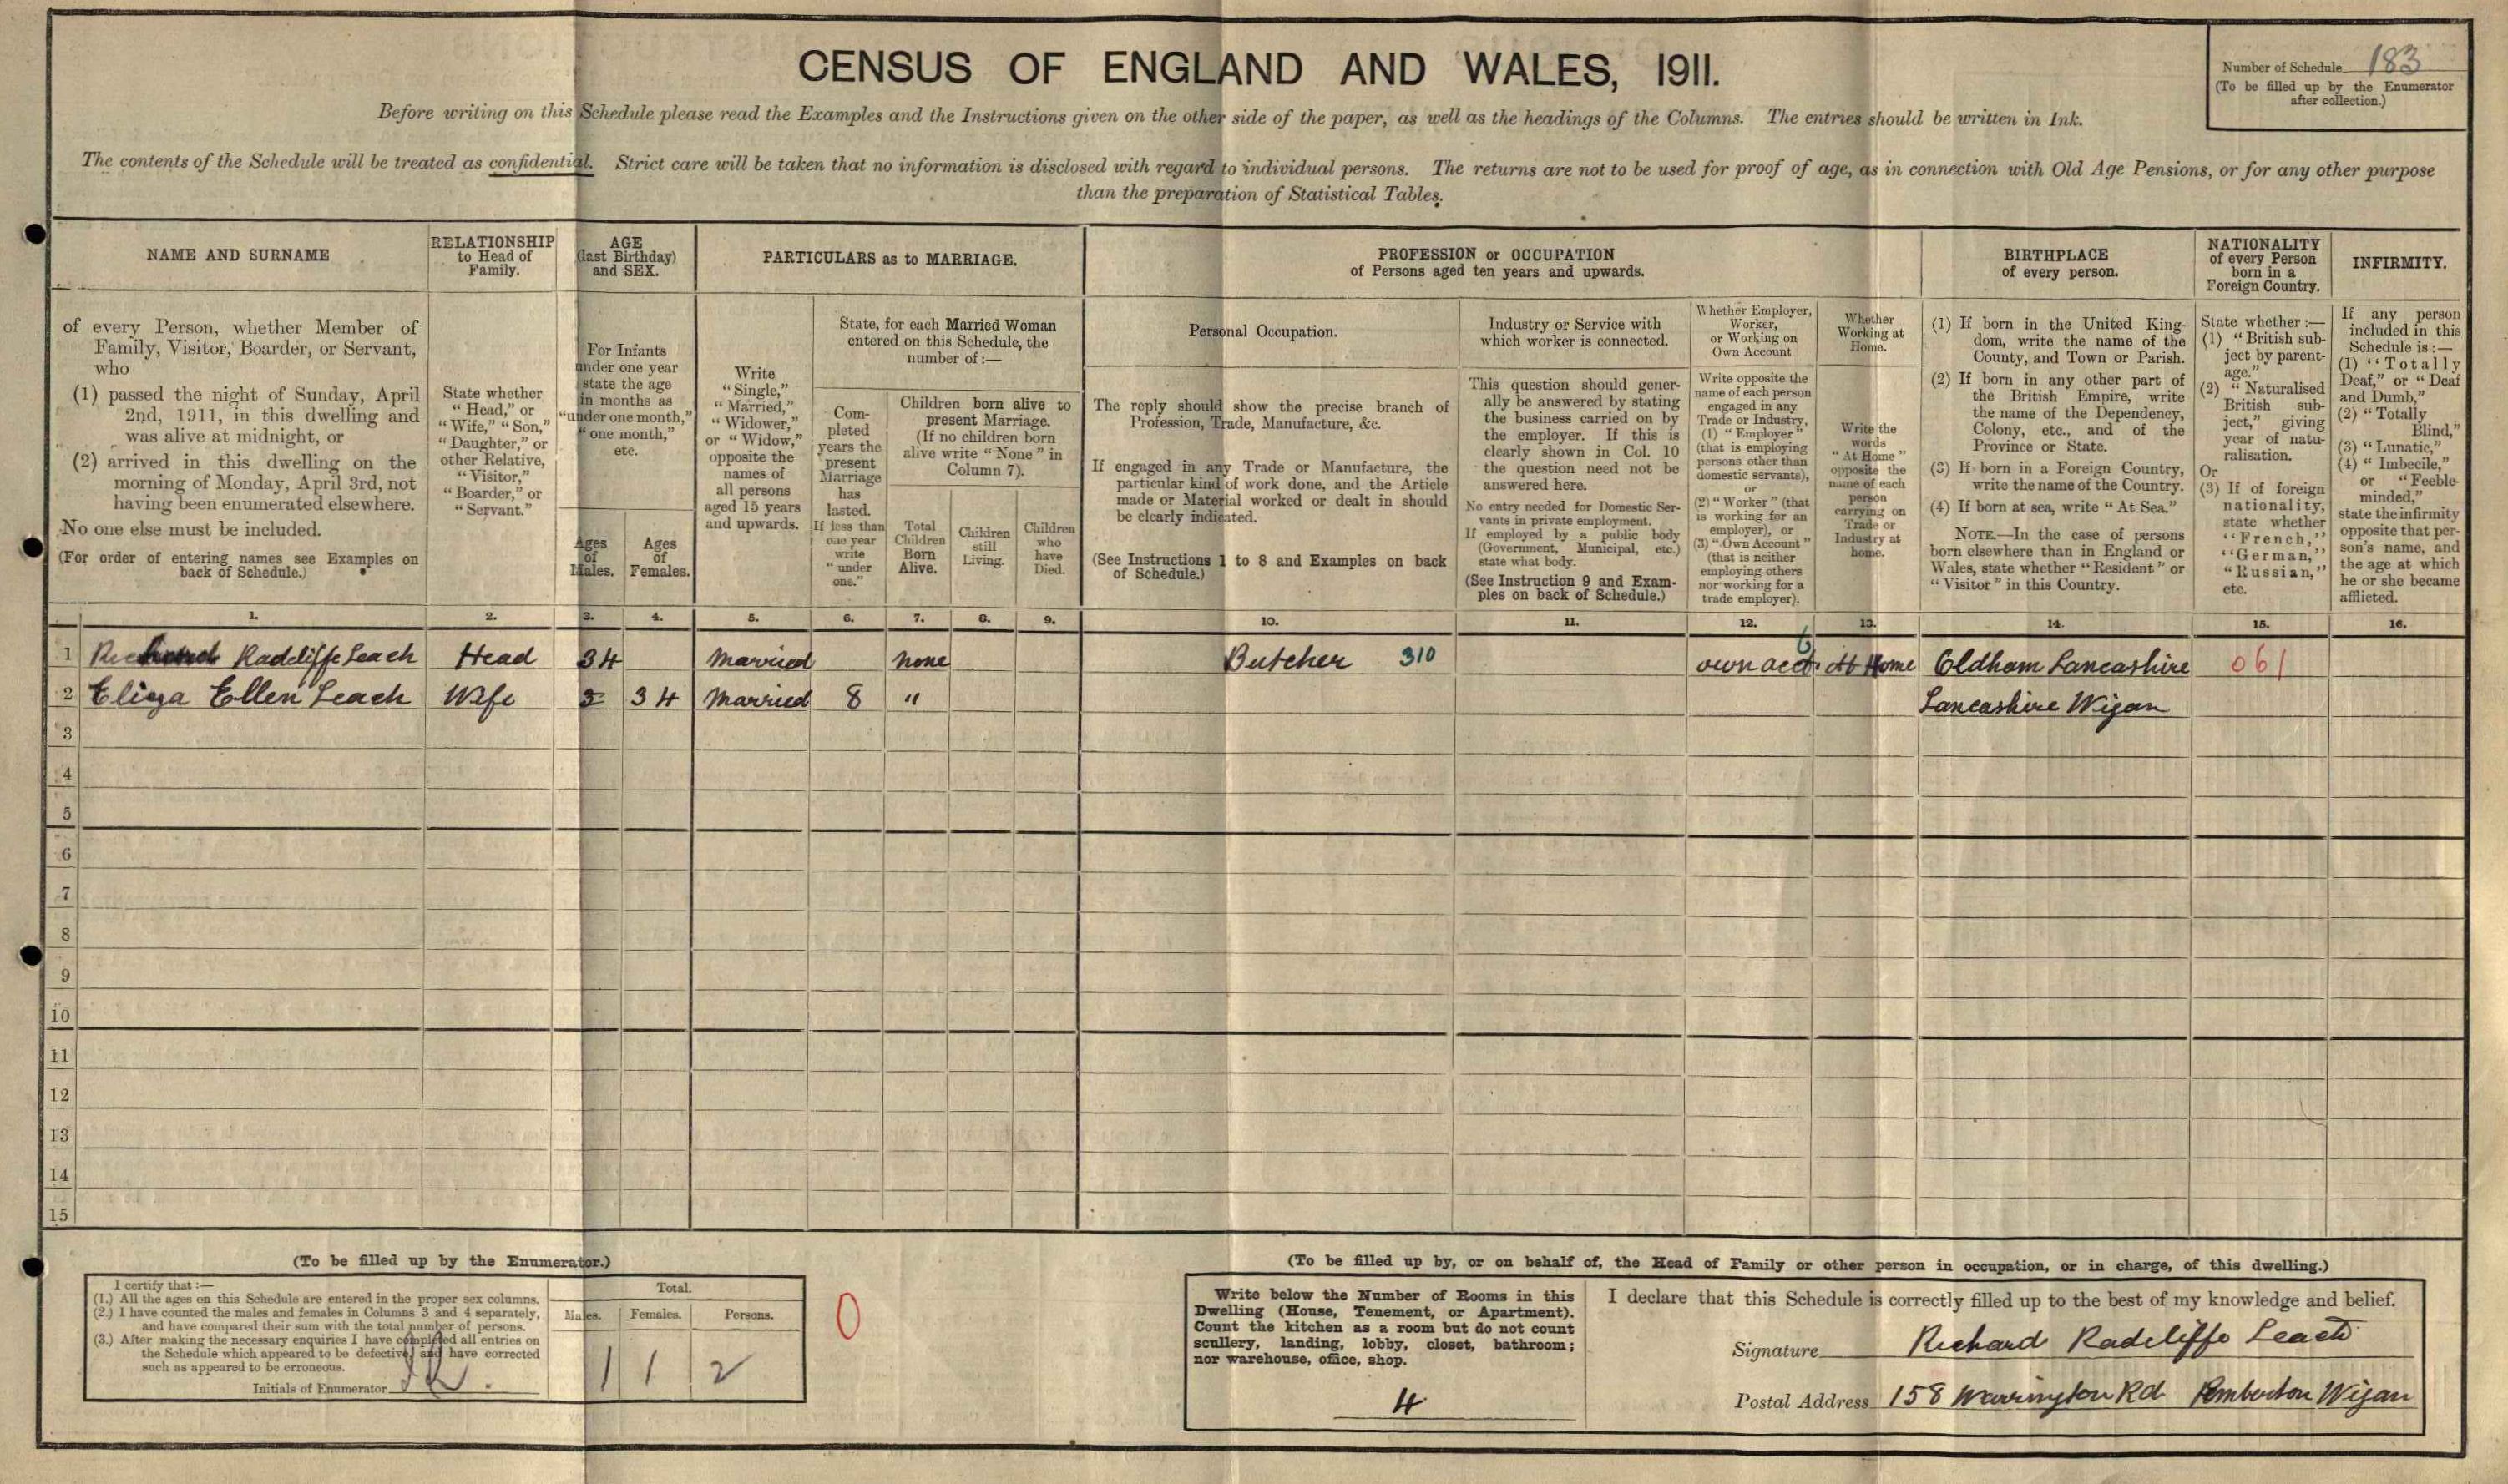 CENSUS OF ENGLAND AND WALES, 1911.
Number of Schedule 183
(To be filled up by the Enumerator
after collection.)
Before writing on this Schedule please read the Examples and the Instructions given on the other side of the paper, as well as the headings of the Columns. The entries should be written in Ink.
The contents of the Schedule will be treated as confidential. Strict care will be taken that no information is disclosed with regard to individual persons. The returns are not to be used for proof of age, as in connection with Old Age Pensions, or for any other purpose
than the preparation of Statistical Tables.
NAME AND SURNAME
of every Person, whether Member of
Family, Visitor, Boarder, or Servant,
who
(1) passed the night of Sunday, April
2nd, 1911, in this dwelling and
was alive at midnight, or
(2) arrived in this dwelling on the
morning of Monday, April 3rd, not
having been enumerated elsewhere.
No one else must be included.
(For order of entering names see Examples on
back of Schedule.)
RELATIONSHIP
to Head of
Family.
State whether
"Head," or
"Wife," "Son,"
"Daughter," or
other Relative,
"Visitor,"
"Boarder," or
"Servant."
AGE
(last Birthday)
and SEX.
For Infants
under one year
state the age
in months as
"under one month,"
"one month,"
etc.
Ages
of
Males.
Ages
of
Females.
PARTICULARS as to MARRIAGE.
Write
"Single,"
"Married,"
"Widower,"
or "Widow,"
opposite the
names of
all persons
aged 15 years
and upwards.
State, for each Married Woman
entered on this Schedule, the
number of :—
Com-
pleted
years the
present
Marriage
has
lasted.
If less than
one year
write
"under
one."
Children born alive to
present Marriage.
(If no children born
alive write "None" in
Column 7).
Total
Children
Born
Alive.
Children
still
Living.
Children
who
have
Died.
PROFESSION or OCCUPATION
of Persons aged ten years and upwards.
Personal Occupation.
The reply should show the precise branch of
Profession, Trade, Manufacture, &c.
If engaged in any Trade or Manufacture, the
particular kind of work done, and the Article
made or Material worked or dealt in should
be clearly indicated.
(See Instructions 1 to 8 and Examples on back
of Schedule.)
Industry or Service with
which worker is connected.
This question should gener-
ally be answered by stating
the business carried on by
the employer. If this is
clearly shown in Col. 10
the question need not be
answered here.
No entry needed for Domestic Ser-
vants in private employment.
If employed by a public body
(Government, Municipal, etc.)
state what body.
(See Instruction 9 and Exam-
ples on back of Schedule.)
Whether Employer,
Worker,
or Working on
Own Account
Write opposite the
name of each person
engaged in any
Trade or Industry,
(1) "Employer"
(that is employing
persons other than
domestic servants),
or
(2) "Worker" (that
is working for an
employer), or
(3) "Own Account"
(that is neither
employing others
nor working for a
trade employer).
Whether
Working at
Home.
Write the
words
"At Home"
opposite the
name of each
person
carrying on
Trade or
Industry at
home.
BIRTHPLACE
of every person.
(1) If born in the United King-
dom, write the name of the
County, and Town or Parish.
(2) If born in any other part of
the British Empire, write
the name of the Dependency,
Colony, etc., and of the
Province or State.
(3) If born in a Foreign Country,
write the name of the Country.
(4) If born at sea, write "At Sea."
NOTE.—In the case of persons
born elsewhere than in England or
Wales, state whether "Resident" or
"Visitor" in this Country.
NATIONALITY
of every Person
born in a
Foreign Country.
State whether :—
(1) "British sub-
ject by parent-
age."
(2) "Naturalised
British sub-
ject," giving
year of natu-
ralisation.
Or
(3) If of foreign
nationality,
state whether
"French,"
"German,"
"Russian,"
etc.
INFIRMITY.
If any person
included in this
Schedule is :—
(1) "Totally
Deaf," or "Deaf
and Dumb,"
(2) "Totally
Blind,"
(3) "Lunatic,"
(4) "Imbecile,"
or "Feeble-
minded,"
state the infirmity
opposite that per-
son's name, and
the age at which
he or she became
afflicted.
1. 2. 3. 4. 5. 6. 7. 8. 9. 10. 11. 12. 13. 14. 15. 16.
6
1 Richard Radcliffe Leach Head 34 Married none Butcher 310 own acct. At Home Oldham Lancashire 061
2 Eliza Ellen Leach Wife 3 34 Married 8 " Lancashire Wigan
3
4
5
6
7
8
9
10
11
12
13
14
15
(To be filled up by the Enumerator.)
I certify that :—
(1.) All the ages on this Schedule are entered in the proper sex columns.
(2.) I have counted the males and females in Columns 3 and 4 separately,
and have compared their sum with the total number of persons.
(3.) After making the necessary enquiries I have completed all entries on
the Schedule which appeared to be defective, and have corrected
such as appeared to be erroneous.
Initials of Enumerator
Total.
Males. Females. Persons.
1 1 2
0
(To be filled up by, or on behalf of, the Head of Family or other person in occupation, or in charge, of this dwelling.)
Write below the Number of Rooms in this
Dwelling (House, Tenement, or Apartment).
Count the kitchen as a room but do not count
scullery, landing, lobby, closet, bathroom;
nor warehouse, office, shop.
4
I declare that this Schedule is correctly filled up to the best of my knowledge and belief.
Signature Richard Radcliffe Leach
Postal Address 158 Warrington Rd Pemberton Wigan